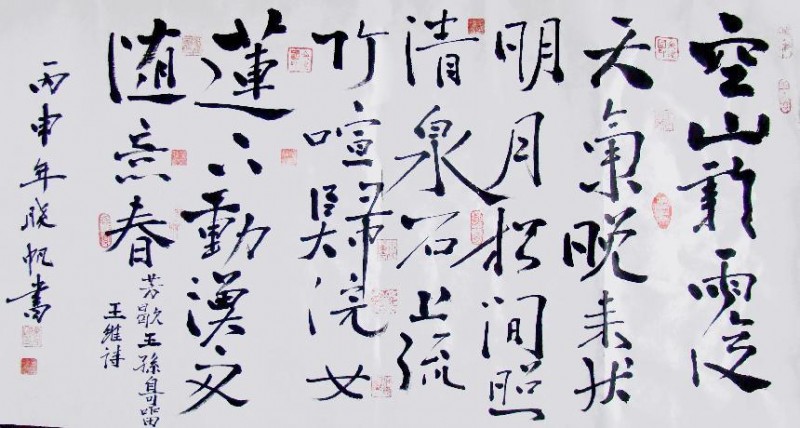 空山新雨後
天氣晚来秋
明月松间照
清泉石上流
竹喧歸浣女
蓮下動漁舟
随意春
芳歇王孫自可留
王維詩
丙申年晓帆書